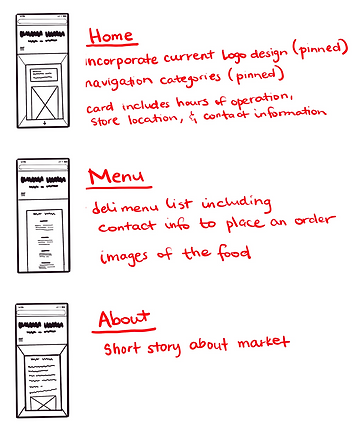 Home
incorporate current logo design (pinned)
navigation categories (pinned)
card includes hours of operation,
store location, & contact information
Menu
deli menu list including
contact info to place an order
images of the food
About
short story about market